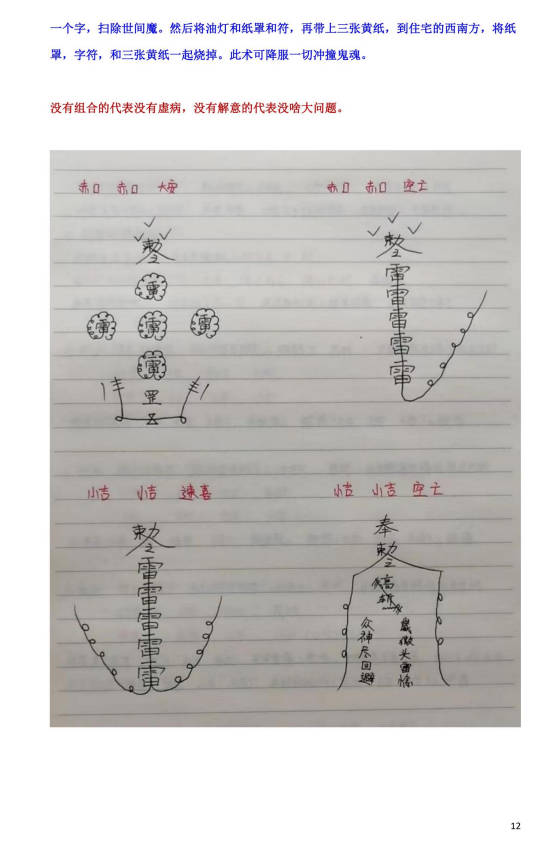 一个字，扫除世间魔。然后将油灯和纸罩和符，再带上三张黄纸，到住宅的西南方，将纸
罩，字符，和三张黄纸一起烧掉。此术可降服一切冲撞鬼魂。
没有组合的代表没有虚病，没有解意的代表没啥大问题。
赤口 赤口 大安
敕
雷
雷 雷 雷
雷
罡
赤口 赤口 空亡
敕
雷
雷
雷
雷
雷
小吉 小吉 速喜
敕
雷
雷
雷
雷
雷
小吉 小吉 空亡
奉
敕
高
众神尽回避
12